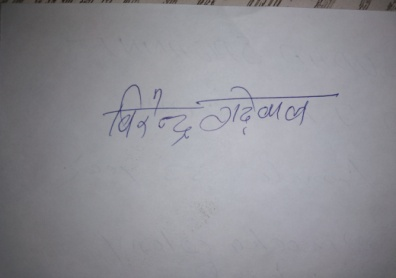 विरेन्द्र गढ़वाल